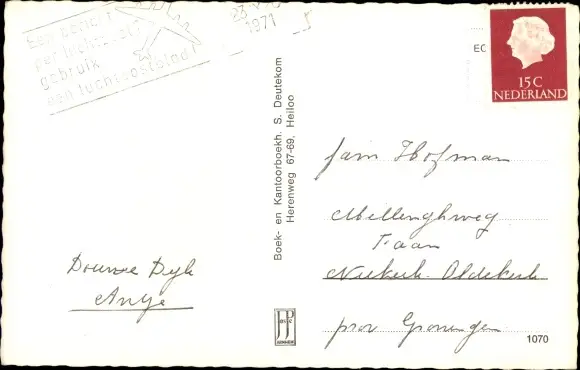 Een bericht
per luchtpost?
gebruik
een luchtpostblad!
1971
EC
15 C
NEDERLAND
Boek- en Kantoorboekh. S. Deutekom
Herenweg 67-69, Heiloo
fam Hofman
Mellenghweg
Faan
Niekerk-Oldekerk
prov Groningen
Douwe Dijk
Antje
JosPé
1070